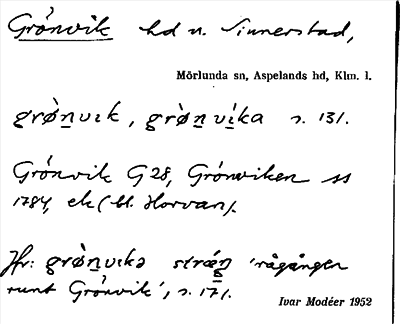 Grönvik hd n. Sinnerstad,
Mörlunda sn, Aspelands hd, Klm. l.
grø̀n̠vɩk, grø̀n̠vi̠ka s. 131.
Grönvik G 28, Grönviken ss
1784, ek (bl. Horvan).
Jfr: grø̀n̠vɩkə stræŋ 'rågången
runt Grönvik', s. 171.
Ivar Modéer 1952